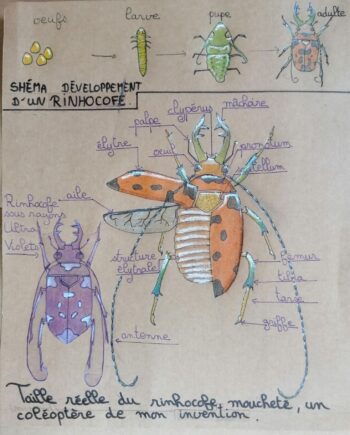 oeufs
larve
pupe
adulte
SHÉMA DÉVELOPPEMENT
D'UN RINHOCOFÉ.
clypérus
mâchoire
palpe
oeuil
pronotum
scutellum
élytre
aile
Rinhocofe
sous rayons
Ultra
Violets
structure
élytrale
antenne
fémur
tibia
tarse
griffe
Taille réelle du rinhocofe moucheté, un
coléoptère de mon invention.